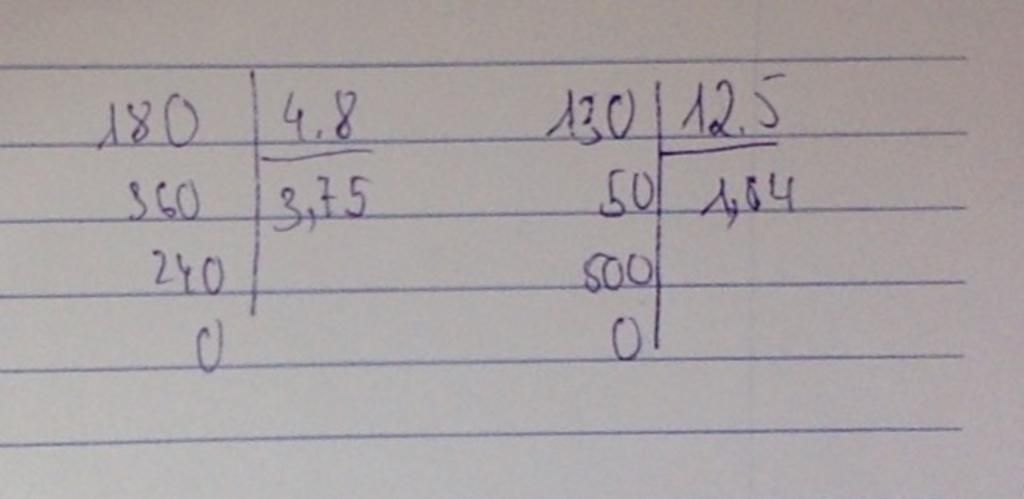 180 4.8 130 12.5
360 3,75 50 1,04
240 500
0 0